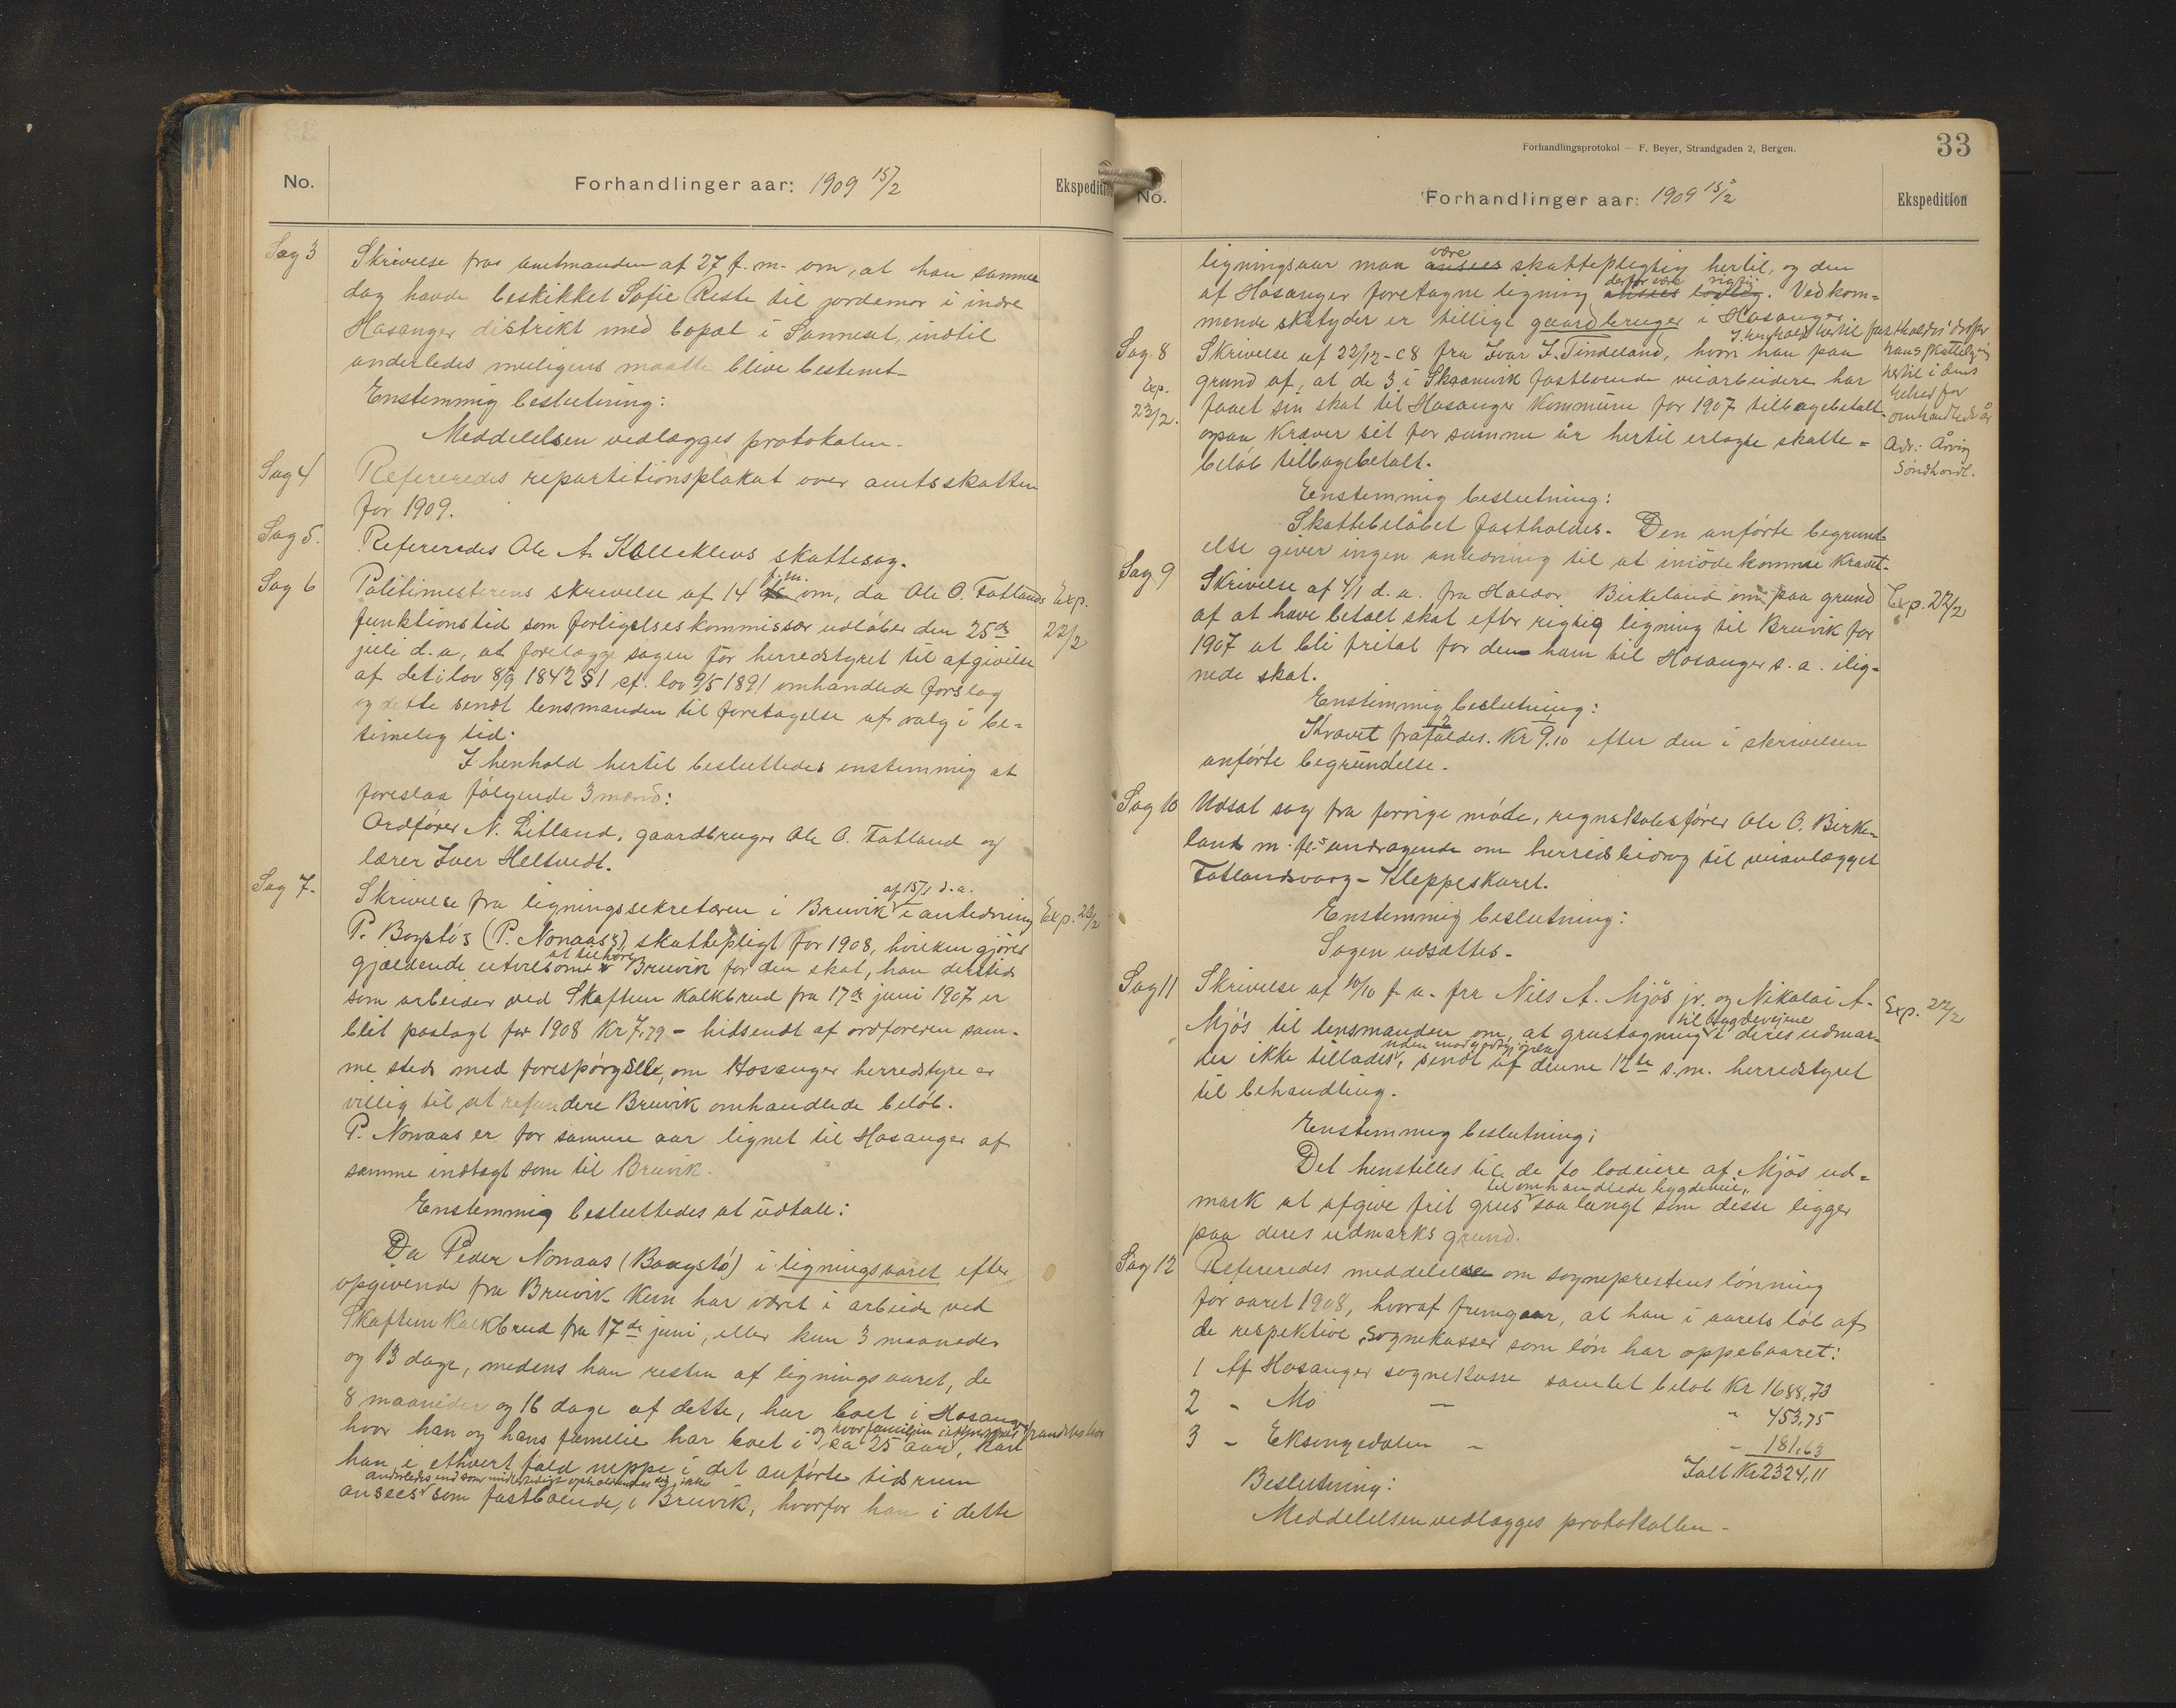 No.
Forhandlinger aar: 1909 15/2
Ekspedition
Sag 3
Skrivelse fra amtmanden af 27 f. m. om, at han samme
dag havde beskikket Sofie Reste til jordemor i indre
Hosanger distrikt med bopæl i Sannesat, indtil
anderledes muligens maatte blive bestemt.
Enstemmig beslutning:
Meddelelsen vedlægges protokolen.
Sag 4
Refereredes repartitionsplakat over amtsskatten
for 1909.
Sag 5.
Refereredes Ole A. Kalleklevs skattesag.
Sag 6
Politimesterens skrivelse af 14 f. m. om, da Ole O. Fatlands
Exp. 22/2
funktionstid som forligelseskommissær udløber den 25de
juli d. a., at forelægge sagen for herredstyret til afgivelse
af det i lov 8/9 1842 § 1 cf. lov 9/5 1891 omhandlede forslag
og dette sendt lensmanden til foretagelse af valg i be-
timelig tid.
I henhold hertil besluttedes enstemmig at
foreslaa følgende 3 mænd:
Ordfører N. Litland, gaardbruger Ole O. Fatland og
lærer Iver Heltvedt.
Sag 7.
Skrivelse fra ligningssekretæren i Bruvik af 15/1 d. a. i anledning
Exp. 23/2
P. Bøystøs (P. Nonaas's) skattepligt for 1908, hvilken gjøres
gjældende utvilsomt at tilhøre Bruvik for den skat, han dersteds
som arbeider ved Skaftun kalkbrud fra 17de juni 1907 er
blit paalagt for 1908 Kr 7,79 - hidsendt af ordføreren sam-
me steds med forespørgsel, om Hosanger herredstyre er
villig til at refundere Bruvik omhandlede beløb.
P. Nonaas er for samme aar lignet til Hosanger af
samme indtægt som til Bruvik.
Enstemmig besluttedes at udtale:
Da Peder Nonaas (Baugstø) i ligningsaaret efter
opgivende fra Bruvik kun har været i arbeide ved
Skaftun Kalkbrud fra 17de juni, eller kun 3 maaneder
og 13 dage, medens han resten af ligningsaaret, de
8 maaneder og 16 dage af dette, har boet i Hosanger
hvor han og hans familie har boet i ca 25 aar, kan
og hvor familjen
han i ethvert fald neppe i det anførte tidsrum
anderledes end som midlertidigt opholdende sig ikke
ansees som fastboende i Bruvik, hvorfor han i dette
Forhandlingsprotokol — F. Beyer, Strandgaden 2, Bergen.
33
No.
Forhandlinger aar: 1909 15/2
Ekspedition
ligningsaar maa ansees være skattepligtig hertil, og den
af Hosanger foretagne ligning ansees lovlig derfor være rigtig. Vedkom-
mende skatyder er tilligt gaardbruger i Hosanger.
I henhold hertil fastholdes derfor
hans skattelign
hertil i dens
helhed for
omhandlede år
Sag 8
Exp. 23/2.
Skrivelse af 22/12-08 fra Ivar J. Tindeland, hvori han paa
grund af, at de 3 i Skaanevik fastboende veiarbeidere har
faaet sin skat til Hosanger Kommune for 1907 tilbagebetalt
ogsaa kræver sit for samme år hertil erlagte skatte-
beløb tilbagebetalt.
Adr: Årvig
Söndhordl.
Enstemmig beslutning:
Skattebeløbet fastholdes. Den anførte begrund-
else giver ingen anledning til at imødekomme kravet.
Sag 9
Skrivelse af 4/1 d. a. fra Haldor Birkeland om paa grund
Exp. 22/2
af at have betalt skat efter rigtig ligning til Bruvik for
1907 at bli fritat for den ham til Hosanger s. a. ilig-
nede skat.
Enstemmig beslutning:
Kravet frafaldes. Kr 9,10 efter den i skrivelsen
anførte begrundelse.
Sag 10
Udsat sag fra forrige møde, regnskabsfører Ole O. Birke-
land m. fl.s andragende om herredsbidrag til veianlægget
Fatlandsvaag - Kleppeskaret.
Enstemmig beslutning:
Sagen udsættes.
Sag 11
Skrivelse af 10/10 f. a. fra Nils A. Mjøs jr. og Nikolai A.
Exp. 22/2
Mjøs til lensmanden om, at grustagning til bygdeveiene i deres udmar-
ker ikke tillades uden mod godtgjørelse, sendt af denne 12te s. m. herredstyret
til behandling.
Enstemmig beslutning:
Det henstilles til de to lodeiere af Mjøs ud-
mark at afgive frit grus til omhandlede bygdeveie, saa langt som disse ligger
paa deres udmarks grund.
Sag 12
Refereredes meddelelse om sogneprestens lønning
for aaret 1908, hvoraf fremgaar, at han i aarets løb af
de respektive sognekasser som løn har oppebaaret:
1 Af Hosanger sognekasse samlet beløb Kr 1688,73
2 - Mo - - 453,75
3 - Eksingedalen - - 181,63
Ialt Kr 2324,11
Beslutning:
Meddelelsen vedlægges protokollen.